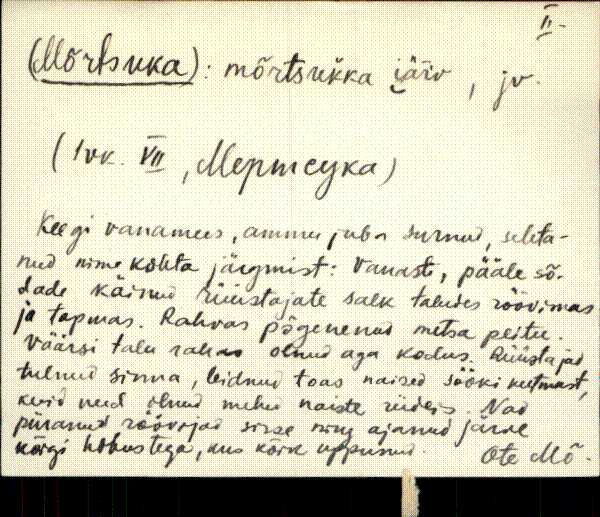 II.
(Mõrtsuka): mõrtsukka järv, jv.
(1vk. VII, Мертсука)
Keegi vanamees, ammu juba surnud, seleta-
nud nime kohta järgmist: Vanasti, pääle sõ-
dade käinud rüüstajate salk taludes röövimas
ja tapmas. Rahvas põgenenud metsa peitu.
Väärsi talu rahvas olnud aga kodus. Rüüstajad
tulnud sinna, leidnud toas naised sööki keetmast,
kuid need olnud mehed naiste riideis. Nad
piiranud röövijad sisse ning ajanud järve
kõigi hobustega, kus kõik uppunud.
Ote Mõ.